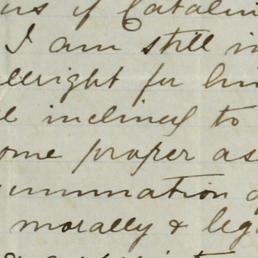 of Catalin
I am still in
allright for him
inclined to
ome proper as
ummation o
morally & leg